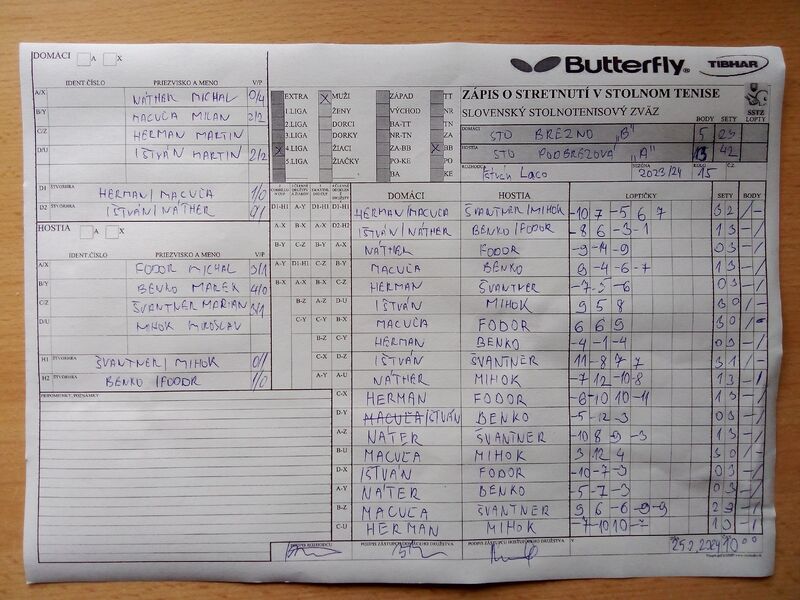 DOMÁCI A X
IDENT.ČÍSLO PRIEZVISKO A MENO V/P
A/X NÁTHER MICHAL 0/4
B/Y MACUĽA MILAN 2/2
C/Z HERMAN MARTIN
D/U IŠTVÁN MARTIN 2/2
D1 ŠTVORHRA HERMAN/MACUĽA 1/0
D2 ŠTVORHRA IŠTVÁN/NÁTHER 0/1
HOSTIA A X
IDENT.ČÍSLO PRIEZVISKO A MENO V/P
A/X FODOR MICHAL 3/1
B/Y BENKO MAREK 4/0
C/Z ŠVANTNER MARIAN 3/1
D/U MIHOK MIROSLAV
H1 ŠTVORHRA ŠVANTNER/MIHOK 0/1
H2 ŠTVORHRA BENKO/FODOR 1/0
PRIPOMIENKY, POZNÁMKY
Butterfly TIBHAR
EXTRA X MUŽI ZÁPAD TT
1.LIGA ŽENY VÝCHOD NR
2.LIGA DORCI BA-TT TN
3.LIGA DORKY NR-TN ZA
X 4.LIGA ŽIACI X ZA-BB BB
5.LIGA ŽIAČKY PO-KE PO
BA KE
ZÁPIS O STRETNUTÍ V STOLNOM TENISE
SLOVENSKÝ STOLNOTENISOVÝ ZVÄZ
SSTZ
BODY SETY LOPTY
DOMÁCI STO BREZNO "B" 5 23
HOSTIA STO PODBREZOVÁ "A" 13 42
ROZHODCA Ištván Laco SEZÓNA 2023/24 KOLO 15 Č.Z.
DOMÁCI HOSTIA LOPTIČKY SETY BODY
D1-H1 A-Y D1-H1 D1-H1 HERMAN/MACUĽA ŠVANTNER/MIHOK -10 7 -5 6 7 3 2 / -
A-X B-X A-X D2-H2 IŠTVÁN/NÁTHER BENKO/FODOR -8 6 -3 -1 1 3 - /
B-Y C-Z B-Y A-X NÁTHER FODOR -9 -14 -9 0 3 - /
A-Y D1-H1 C-Z B-Y MACUĽA BENKO 9 -4 -6 -7 1 3 - /
B-X A-X B-X C-Z HERMAN ŠVANTNER -7 -5 -6 0 3 - /
B-Z A-Z D-U IŠTVÁN MIHOK 9 5 8 3 0 / -
C-Y C-Y B-X MACUĽA FODOR 6 6 9 3 0 / -
B-Z C-Y HERMAN BENKO -4 -1 -4 0 3 - /
C-X D-Z IŠTVÁN ŠVANTNER 11 -8 7 7 3 1 / -
A-Y A-U NÁTHER MIHOK -7 12 -10 -8 1 3 - /
C-X HERMAN FODOR -8 -10 10 -4 1 3 - /
D-Y MACUĽA/IŠTVÁN BENKO -5 -12 -3 0 3 - /
A-Z NÁTER ŠVANTNER -10 8 -9 -3 1 3 - /
B-U MACUĽA MIHOK 3 12 4 3 0 / -
D-X IŠTVÁN FODOR -10 -7 -3 0 3 - /
A-Y NÁTER BENKO -5 -7 -3 0 3 - /
B-Z MACUĽA ŠVANTNER 9 6 -6 -9 -9 2 3 - /
C-U HERMAN MIHOK -7 -10 10 -7 1 3 - /
PODPIS ROZHODCU PODPIS ZÁSTUPCU DOMÁCEHO DRUŽSTVA PODPIS ZÁSTUPCU HOSŤUJÚCEHO DRUŽSTVA V 25.2.2024 10 00